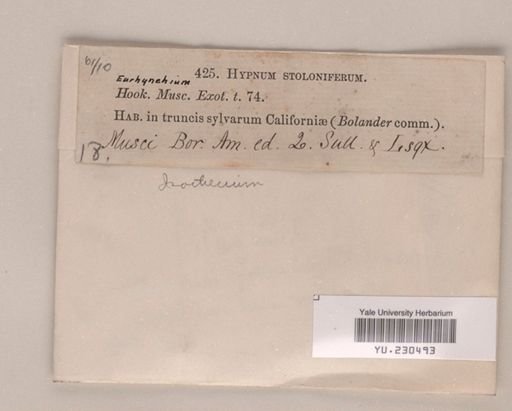 61/10
Eurhynchium 425. HYPNUM STOLONIFERUM.
Hook. Musc. Exot. t. 74.
HAB. in truncis sylvarum Californiæ (Bolander comm.).
18. Musci Bor. Am. ed. 2. Sull. & Lsqx.
Isothecium
Yale University Herbarium
YU.230493